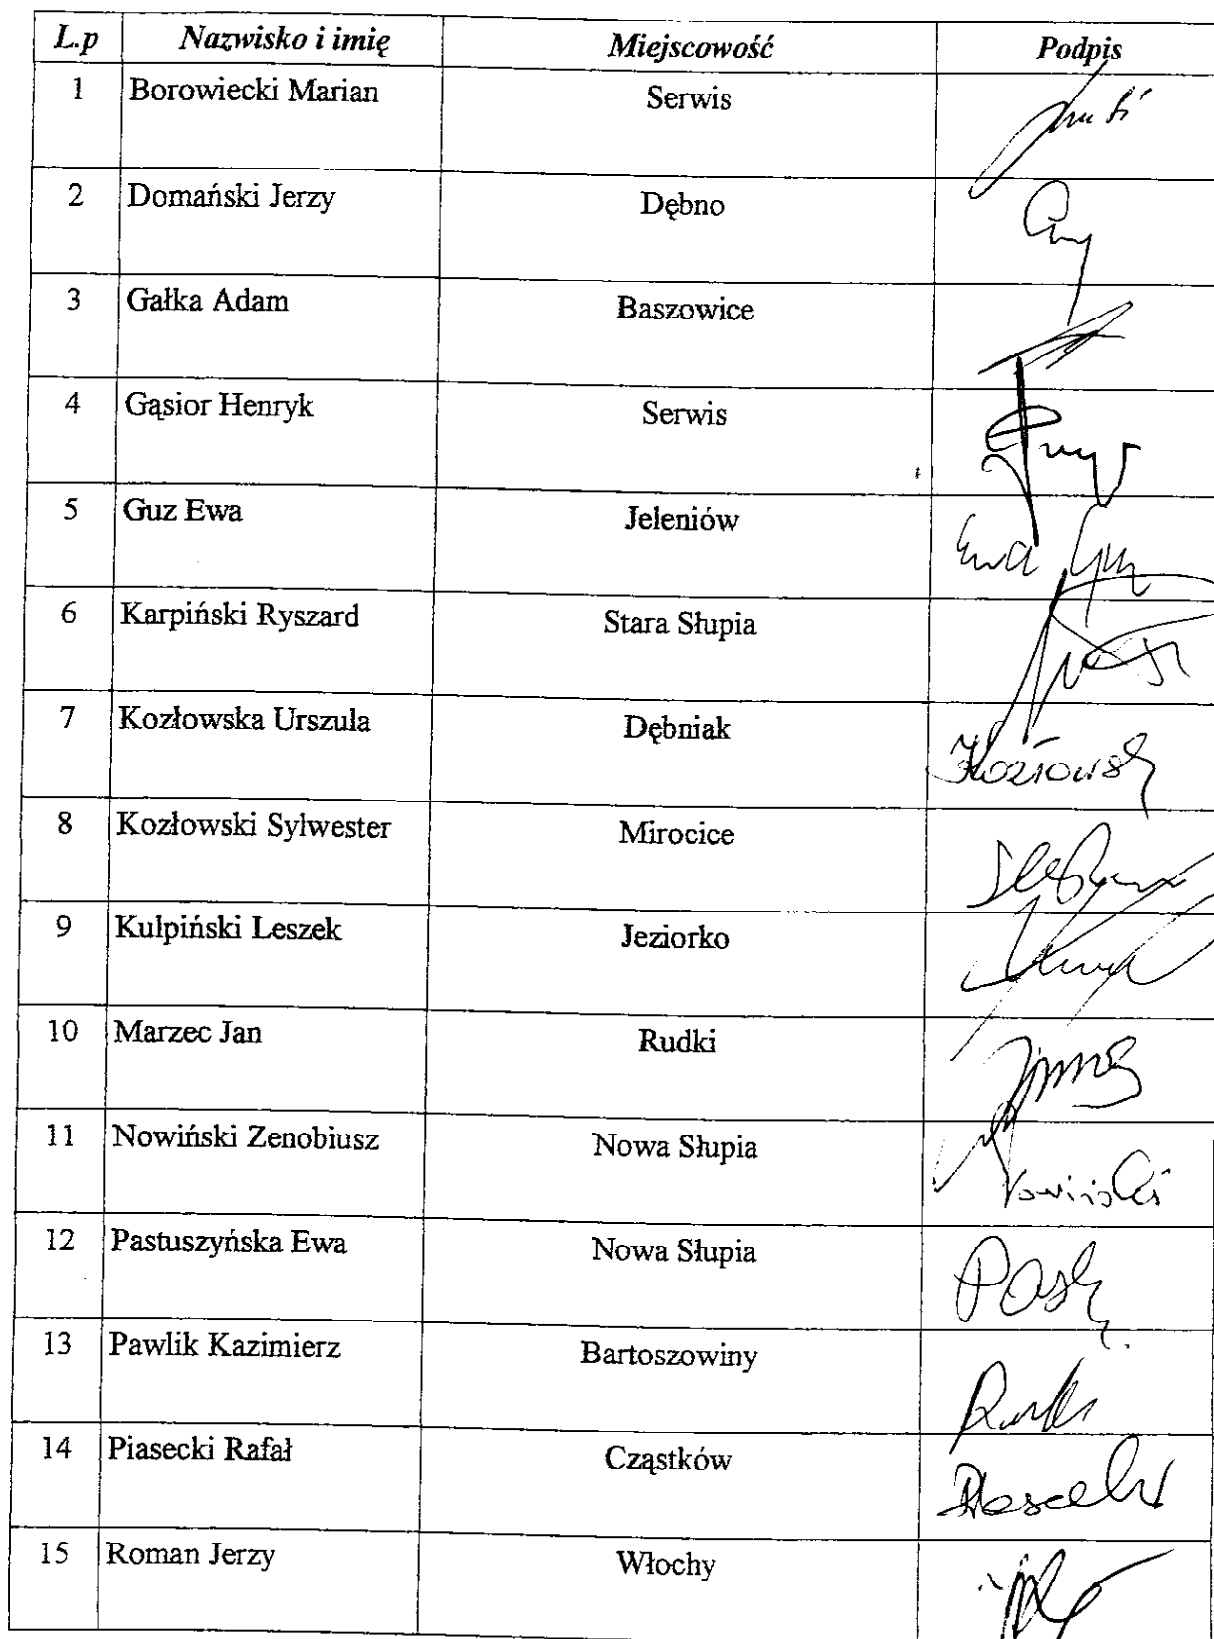 L.p Nazwisko i imię Miejscowość Podpis
1 Borowiecki Marian Serwis
2 Domański Jerzy Dębno
3 Gałka Adam Baszowice
4 Gąsior Henryk Serwis
5 Guz Ewa Jeleniów Ewa Guz
6 Karpiński Ryszard Stara Słupia
7 Kozłowska Urszula Dębniak
8 Kozłowski Sylwester Mirocice
9 Kulpiński Leszek Jeziorko
10 Marzec Jan Rudki
11 Nowiński Zenobiusz Nowa Słupia
12 Pastuszyńska Ewa Nowa Słupia
13 Pawlik Kazimierz Bartoszowiny
14 Piasecki Rafał Cząstków
15 Roman Jerzy Włochy